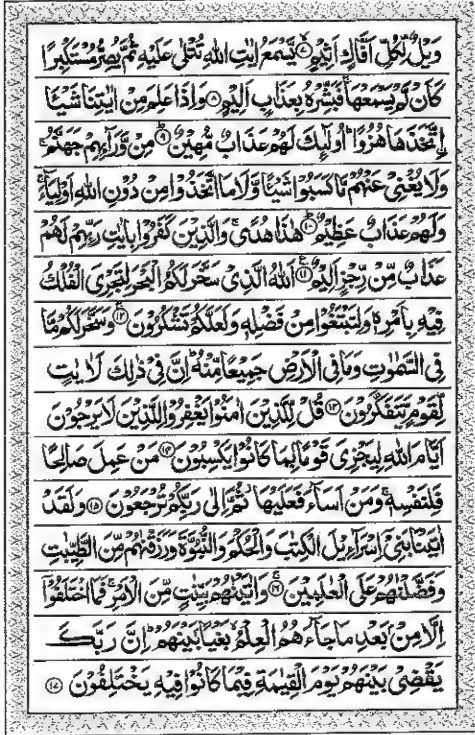 وَيْلٌ لِّكُلِّ اَفَّاكٍ اَثِيْمٍ ۙ﴿۷﴾ يَّسْمَعُ اٰيٰتِ اللّٰهِ تُتْلٰى عَلَيْهِ ثُمَّ يُصِرُّ مُسْتَكْبِرًا
كَاَنْ لَّمْ يَسْمَعْهَا ۚ فَبَشِّرْهُ بِعَذَابٍ اَلِيْمٍ ﴿۸﴾ وَاِذَا عَلِمَ مِنْ اٰيٰتِنَا شَيْـًٔا
اتَّخَذَهَا هُزُوًا ؕ اُولٰٓئِكَ لَهُمْ عَذَابٌ مُّهِيْنٌ ؕ﴿۹﴾ مِنْ وَّرَآئِهِمْ جَهَنَّمُ ۚ
وَلَا يُغْنِيْ عَنْهُمْ مَّا كَسَبُوْا شَيْـًٔا وَّلَا مَا اتَّخَذُوْا مِنْ دُوْنِ اللّٰهِ اَوْلِيَآءَ ۚ
وَلَهُمْ عَذَابٌ عَظِيْمٌ ؕ﴿۱۰﴾ هٰذَا هُدًى ۚ وَالَّذِيْنَ كَفَرُوْا بِاٰيٰتِ رَبِّهِمْ لَهُمْ
عَذَابٌ مِّنْ رِّجْزٍ اَلِيْمٌ ﴿۱۱﴾ اَللّٰهُ الَّذِيْ سَخَّرَ لَكُمُ الْبَحْرَ لِتَجْرِيَ الْفُلْكُ
فِيْهِ بِاَمْرِهٖ وَلِتَبْتَغُوْا مِنْ فَضْلِهٖ وَلَعَلَّكُمْ تَشْكُرُوْنَ ۚ﴿۱۲﴾ وَسَخَّرَ لَكُمْ مَّا
فِي السَّمٰوٰتِ وَمَا فِي الْاَرْضِ جَمِيْعًا مِّنْهُ ؕ اِنَّ فِيْ ذٰلِكَ لَاٰيٰتٍ
لِّقَوْمٍ يَّتَفَكَّرُوْنَ ﴿۱۳﴾ قُلْ لِّلَّذِيْنَ اٰمَنُوْا يَغْفِرُوْا لِلَّذِيْنَ لَا يَرْجُوْنَ
اَيَّامَ اللّٰهِ لِيَجْزِيَ قَوْمًۢا بِمَا كَانُوْا يَكْسِبُوْنَ ﴿۱۴﴾ مَنْ عَمِلَ صَالِحًا
فَلِنَفْسِهٖ ۚ وَمَنْ اَسَآءَ فَعَلَيْهَا ۫ ثُمَّ اِلٰى رَبِّكُمْ تُرْجَعُوْنَ ﴿۱۵﴾ وَلَقَدْ
اٰتَيْنَا بَنِيْٓ اِسْرَآءِيْلَ الْكِتٰبَ وَالْحُكْمَ وَالنُّبُوَّةَ وَرَزَقْنٰهُمْ مِّنَ الطَّيِّبٰتِ
وَفَضَّلْنٰهُمْ عَلَى الْعٰلَمِيْنَ ۚ﴿۱۶﴾ وَاٰتَيْنٰهُمْ بَيِّنٰتٍ مِّنَ الْاَمْرِ ۚ فَمَا اخْتَلَفُوْٓا
اِلَّا مِنْۢ بَعْدِ مَا جَآءَهُمُ الْعِلْمُ ۙ بَغْيًۢا بَيْنَهُمْ ؕ اِنَّ رَبَّكَ
يَقْضِيْ بَيْنَهُمْ يَوْمَ الْقِيٰمَةِ فِيْمَا كَانُوْا فِيْهِ يَخْتَلِفُوْنَ ﴿۱۷﴾